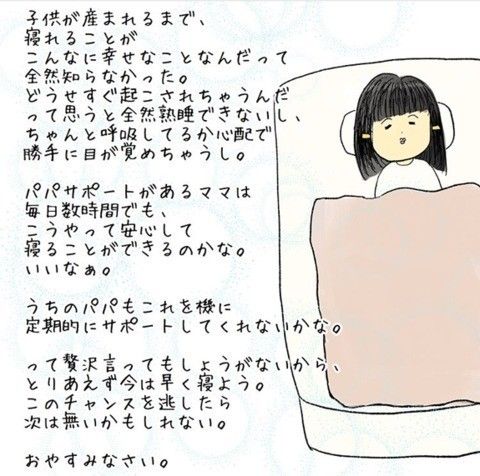 子供が産まれるまで、
寝れることが
こんなに幸せなことなんだって
全然知らなかった。
どうせすぐ起こされちゃうんだ
って思うと全然熟睡できないし、
ちゃんと呼吸してるか心配で
勝手に目が覚めちゃうし。
パパサポートがあるママは
毎日数時間でも、
こうやって安心して
寝ることができるのかな。
いいなぁ。
うちのパパもこれを機に
定期的にサポートしてくれないかな。
って贅沢言ってもしょうがないから、
とりあえず今は早く寝よう。
このチャンスを逃したら
次は無いかもしれない。
おやすみなさい。